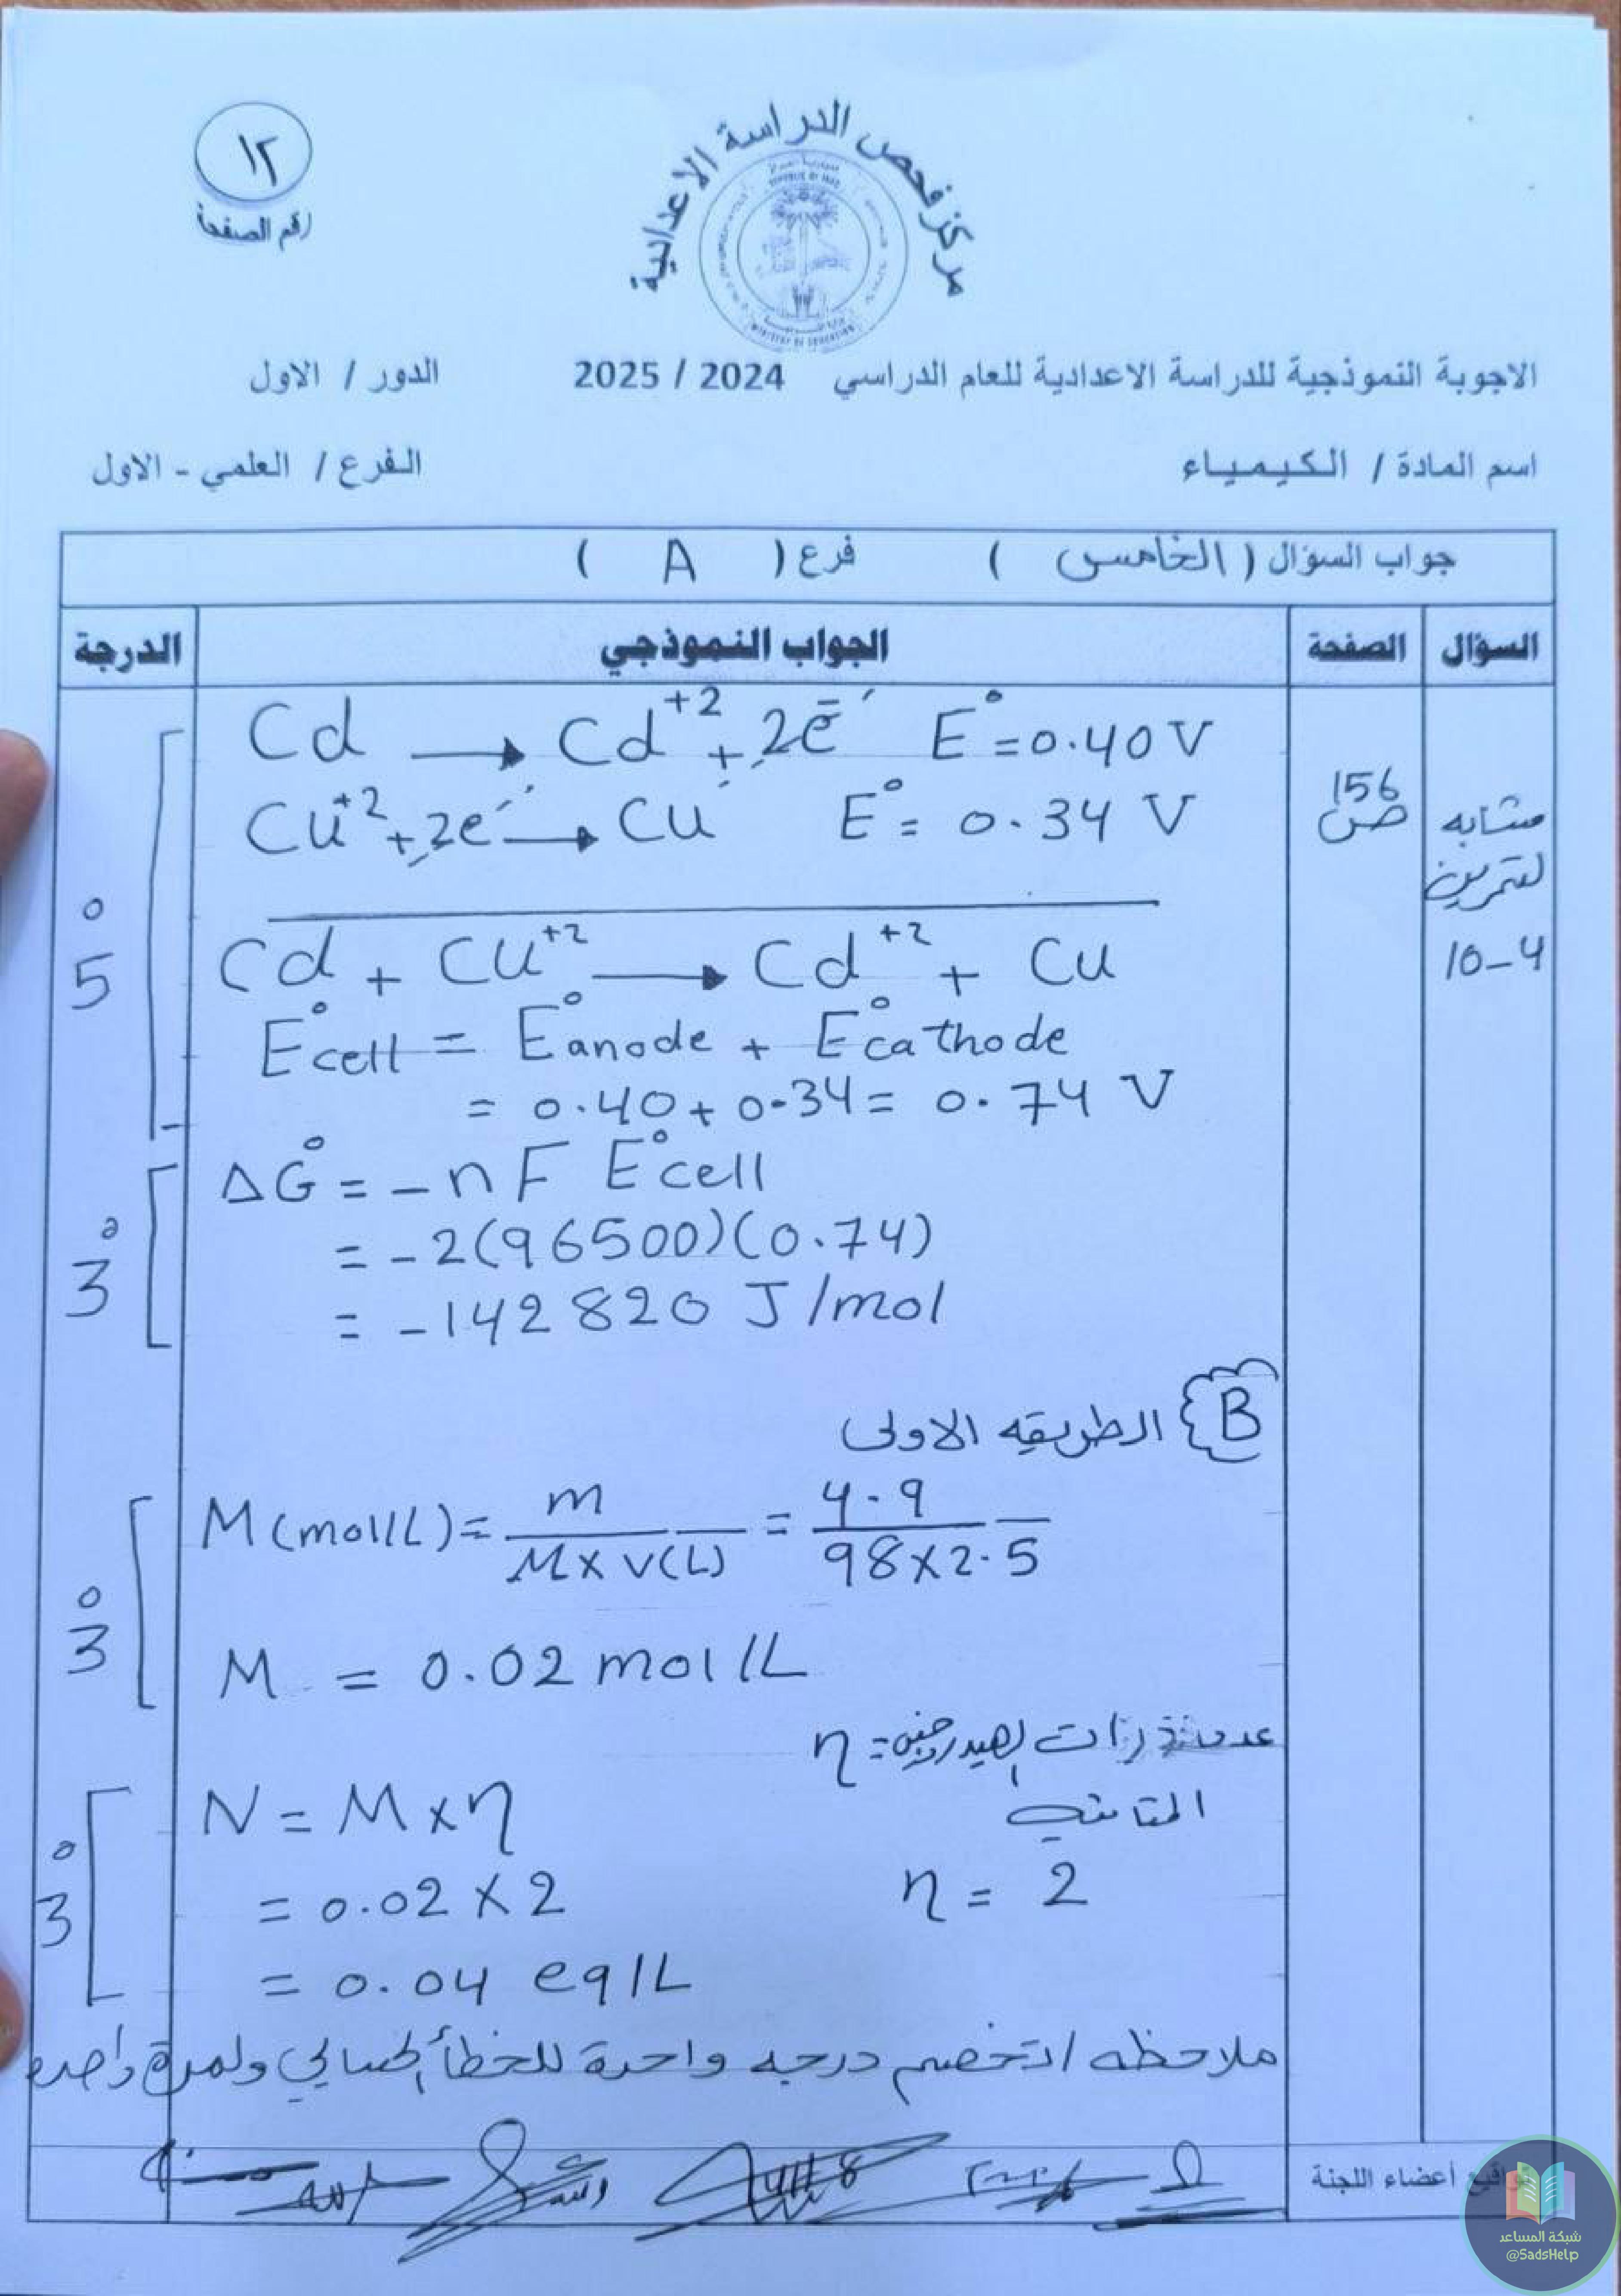 ١٢
رقم الصفحة
مركز فحص الدراسة الاعدادية
REPUBLIC OF IRAQ
MINISTRY OF EDUCATION
الاجوبة النموذجية للدراسة الاعدادية للعام الدراسي 2024 / 2025 الدور / الاول
اسم المادة / الكيمياء الفرع / العلمي - الاول
جواب السؤال ( الخامس ) فرع ( A )
السؤال الصفحة الجواب النموذجي الدرجة
مشابه
لتمرين
10-4
156
ص
Cd → Cd⁺² + 2e⁻ E° = 0.40 V
Cu⁺² + 2e⁻ → Cu E° = 0.34 V
Cd + Cu⁺² → Cd⁺² + Cu
E°cell = E°anode + E°cathode
= 0.40 + 0.34 = 0.74 V
5
ΔG° = -nF E°cell
= -2(96500)(0.74)
= -142820 J/mol
3
B الطريقه الاولى
M(mol/L) = m / M x V(L) = 4.9 / 98 x 2.5
M = 0.02 mol/L
3
η = عدد ذرات الهيدروجين
η = 2
N = M x η
= 0.02 x 2
= 0.04 eq/L
3
ملاحظه / تخصم درجه واحدة للخطأ الحسابي ولمرة واحده
تواقيع أعضاء اللجنة
شبكة المساعد
@SadsHelp